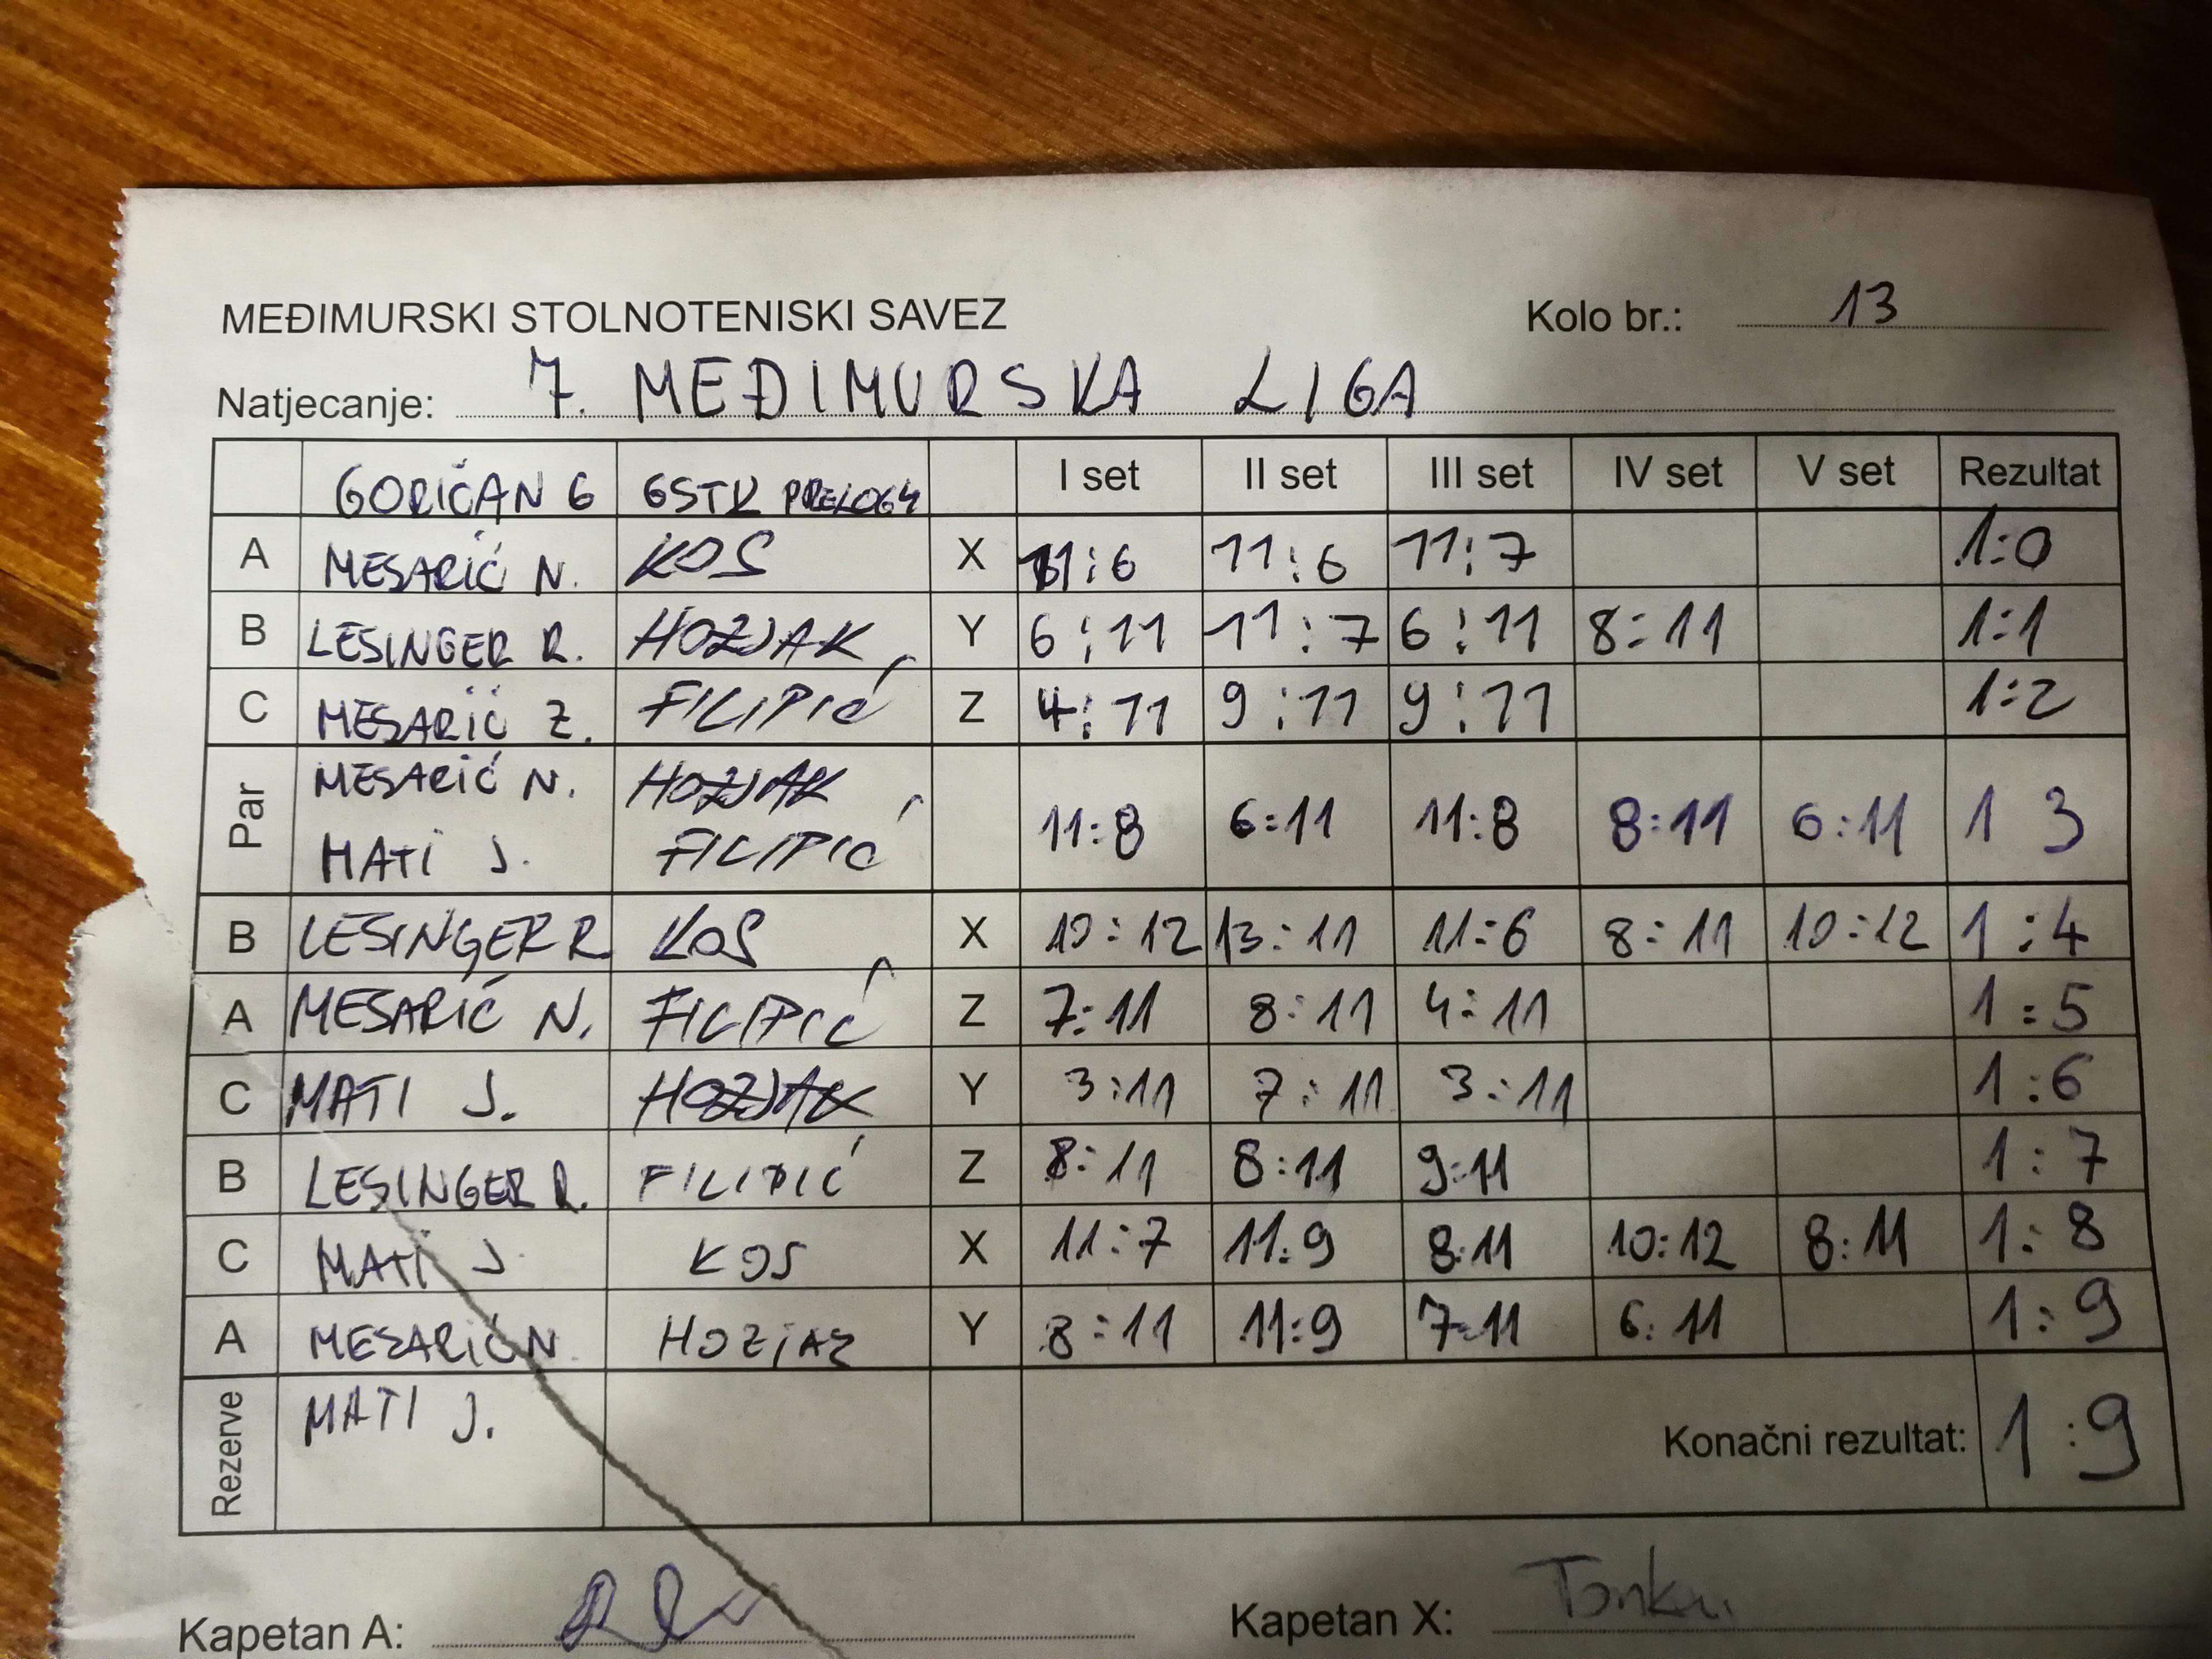 MEĐIMURSKI STOLNOTENISKI SAVEZ Kolo br.: 13
Natjecanje: 7. MEĐIMURSKA LIGA
GORIČAN 6 GSTK PRELOG 4 I set II set III set IV set V set Rezultat
A MESARIĆ N. KOS X 11:6 11:6 11:7 1:0
B LESINGER R. HOZJAK Y 6:11 11:7 6:11 8:11 1:1
C MESARIĆ Z. FILIPIĆ Z 4:11 9:11 9:11 1:2
Par MESARIĆ N. HOZJAK
MATI J. FILIPIĆ 11:8 6:11 11:8 8:11 6:11 1 3
B LESINGER R. KOS X 10:12 13:11 11:6 8:11 10:12 1:4
A MESARIĆ N. FILIPIĆ Z 7:11 8:11 4:11 1:5
C MATI J. HOZJAK Y 3:11 7:11 3:11 1:6
B LESINGER R. FILIPIĆ Z 8:11 8:11 9:11 1:7
C MATI J. KOS X 11:7 11:9 8:11 10:12 8:11 1:8
A MESARIĆ N HOZJAK Y 8:11 11:9 7:11 6:11 1:9
Rezerve MATI J. Konačni rezultat: 1:9
Kapetan A: Kapetan X: